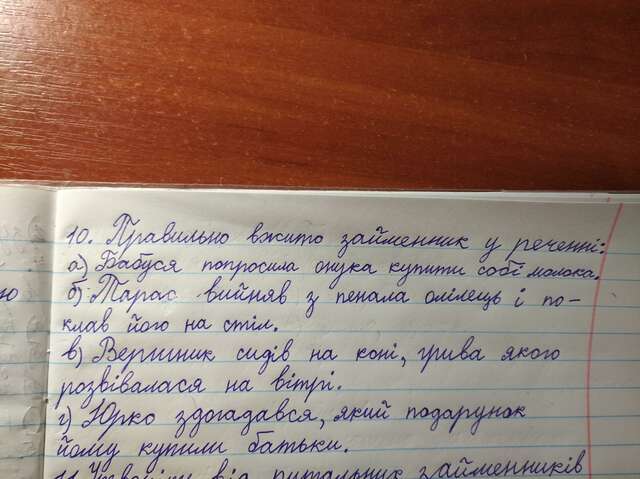 10. Правильно вжито займенник у реченні:
а) Бабуся попросила онука купити собі молока.
б) Тарас вийняв з пенала олівець і по-
клав його на стіл.
в) Вершник сидів на коні, грива якого
розвівалася на вітрі.
г) Юрко здогадався, який подарунок
йому купили батьки.
11. Утворіть від питальних займенників